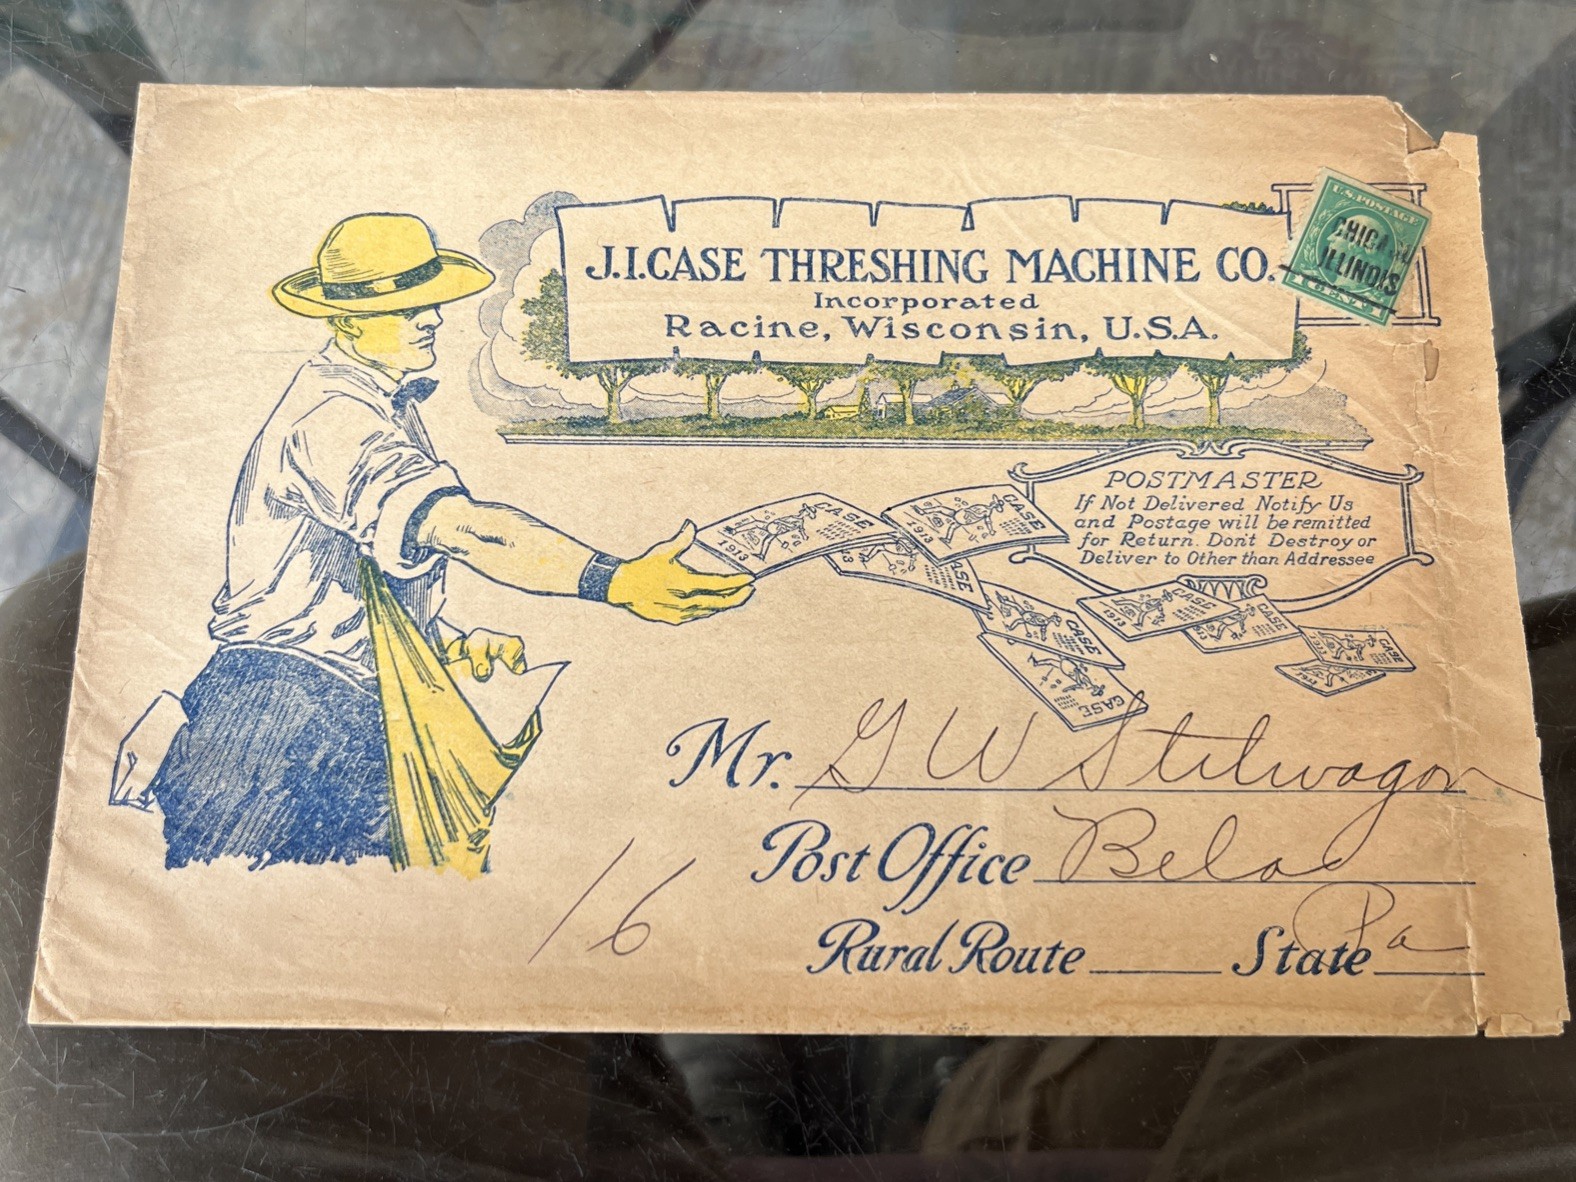 J.I.CASE THRESHING MACHINE CO.
Incorporated
Racine, Wisconsin, U.S.A.
U.S. POSTAGE
CHICAGO
ILLINOIS
1 CENT 1
POSTMASTER
If Not Delivered Notify Us
and Postage will be remitted
for Return. Dont Destroy or
Deliver to Other than Addressee
CASE
1913
CASE
1913
CASE
CASE
CASE
CASE
1913
CASE
CASE
1913
1913
Mr. G W Stilwagon
Post Office Bela
16
Rural Route State Pa